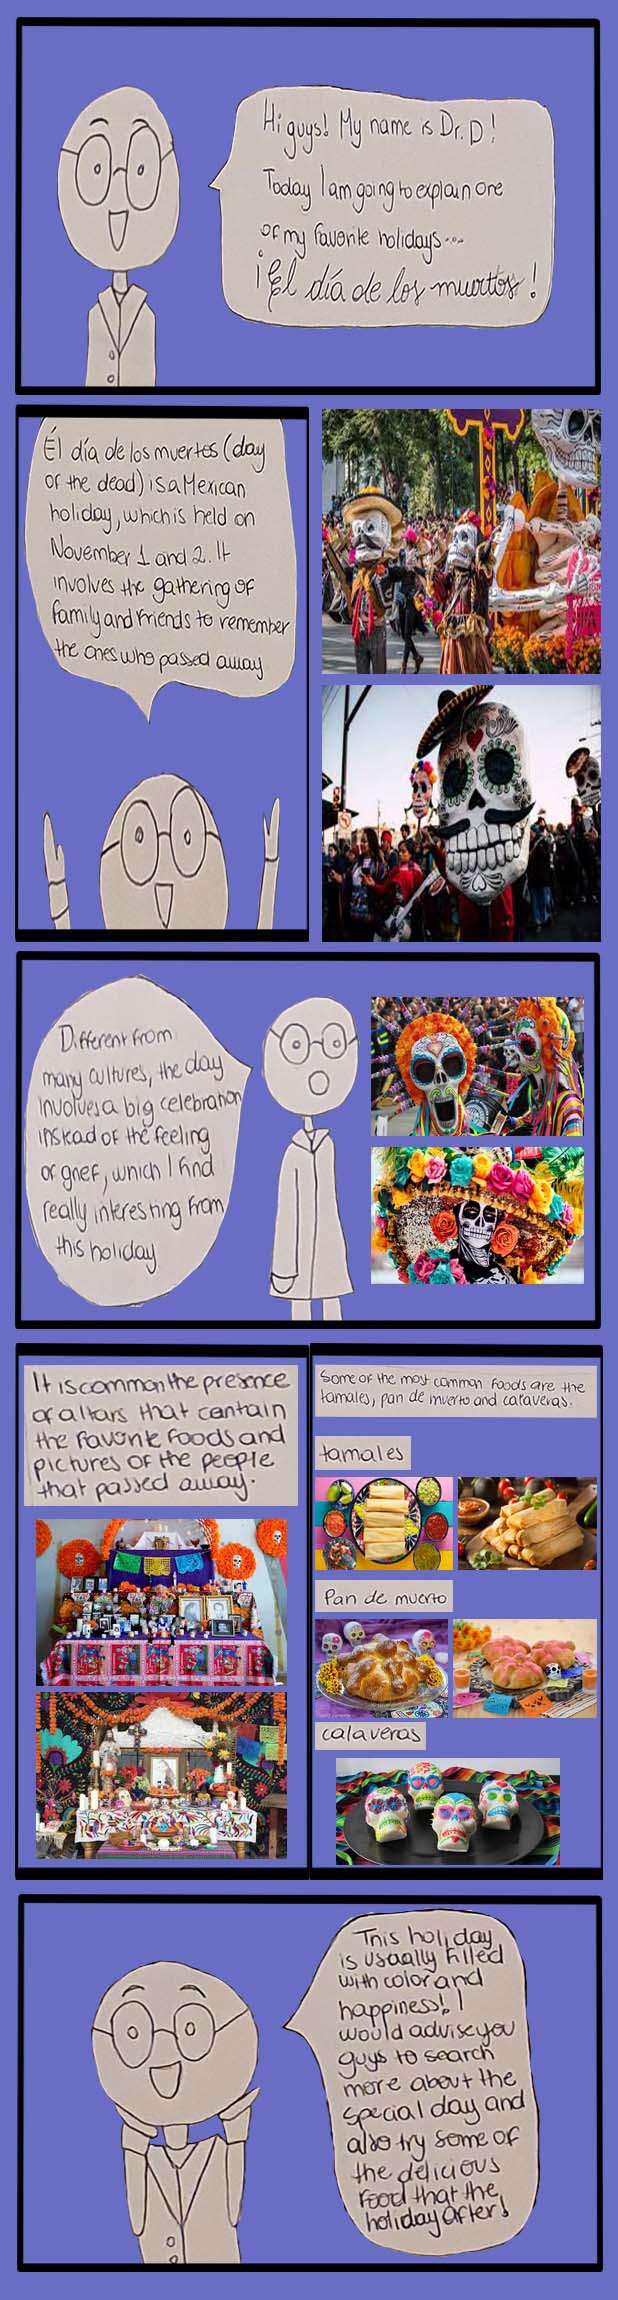 Hi guys! My name is Dr. D!
Today I am going to explain one
of my favorite holidays...
¡El día de los muertos!
Él día de los muertos (day
of the dead) is a Mexican
holiday, which is held on
November 1 and 2. It
involves the gathering of
family and friends to remember
the ones who passed away
Different from
many cultures, the day
involves a big celebration
instead of the feeling
of grief, which I find
really interesting from
this holiday
It is common the presence
of altars that contain
the favorite foods and
pictures of the people
that passed away.
Some of the most common foods are the
tamales, pan de muerto and calaveras.
tamales
Pan de muerto
calaveras
This holiday
is usually filled
with color and
happiness! I
would advise you
guys to search
more about the
special day and
also try some of
the delicious
food that the
holiday offers!